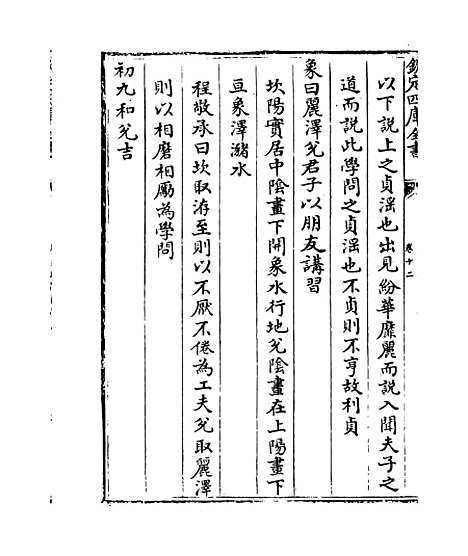 欽定四庫全書
卷十二
以下説上之貞滛也出見紛華靡麗而説入聞夫子之
道而説此學問之貞滛也不貞則不亨故利貞
象曰麗澤兌君子以朋友講習
坎陽實居中陰畫下開象水行地兌陰畫在上陽畫下
亘象澤瀦水
程敬承曰坎取洊至則以不厭不倦為工夫兌取麗澤
則以相磨相勵為學問
初九和兌吉